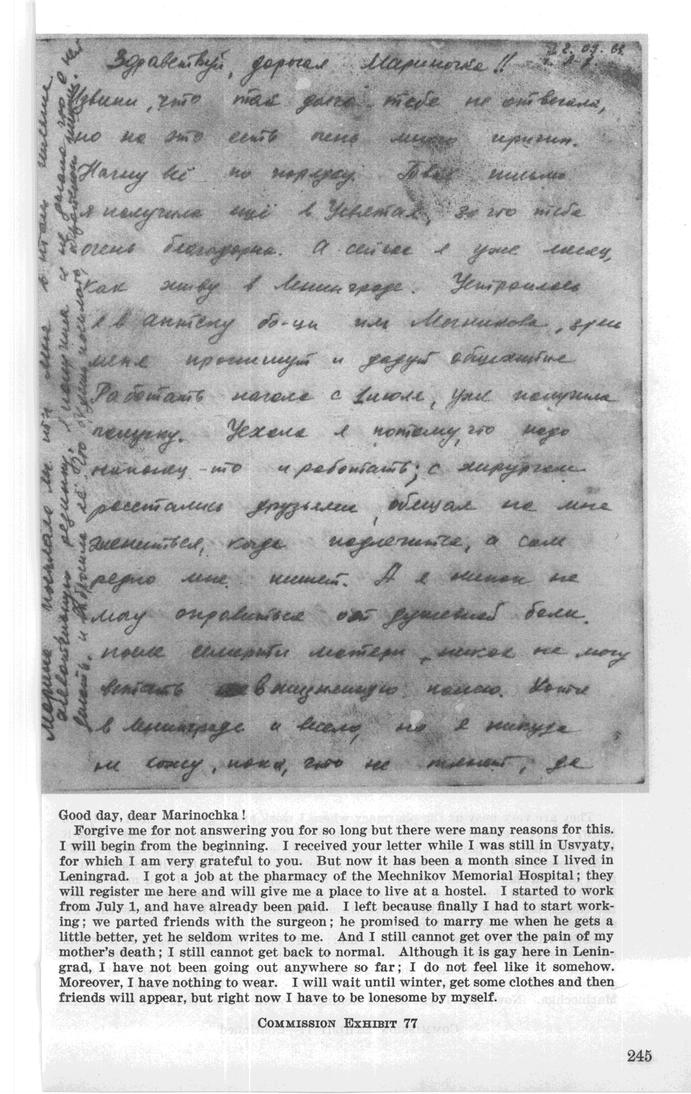 Здравствуй, дорогая Мариночка!!
Извини, что так долго тебе не отвечала,
но на это есть очень много причин.
Начну всё по порядку. Твоё письмо
я получила ещё в Усвятах, за что тебе
очень благодарна. А сейчас я уже месяц,
как живу в Ленинграде. Устроилась
я в аптеку б-цы им Мечникова, здесь
меня пропишут и дадут общежитие
Работать начала с 1 июля, уже получила
получку. Уехала я потому, что надо
наконец-то и работать; с хирургом
расстались друзьями, обещал на мне
жениться, когда подлечится, а сам
редко мне пишет. А я никак не
могу оправиться от душевной боли
после смерти матери, никак не могу
встать в жизненную
в Ленинграде и весело, но я никуда
не хожу, пока, что не тянет, да
Good day, dear Marinochka!
Forgive me for not answering you for so long but there were many reasons for this.
I will begin from the beginning. I received your letter while I was still in Usvyaty,
for which I am very grateful to you. But now it has been a month since I lived in
Leningrad. I got a job at the pharmacy of the Mechnikov Memorial Hospital; they
will register me here and will give me a place to live at a hostel. I started to work
from July 1, and have already been paid. I left because finally I had to start work-
ing; we parted friends with the surgeon; he promised to marry me when he gets a
little better, yet he seldom writes to me. And I still cannot get over the pain of my
mother's death; I still cannot get back to normal. Although it is gay here in Lenin-
grad, I have not been going out anywhere so far; I do not feel like it somehow.
Moreover, I have nothing to wear. I will wait until winter, get some clothes and then
friends will appear, but right now I have to be lonesome by myself.
COMMISSION EXHIBIT 77
245